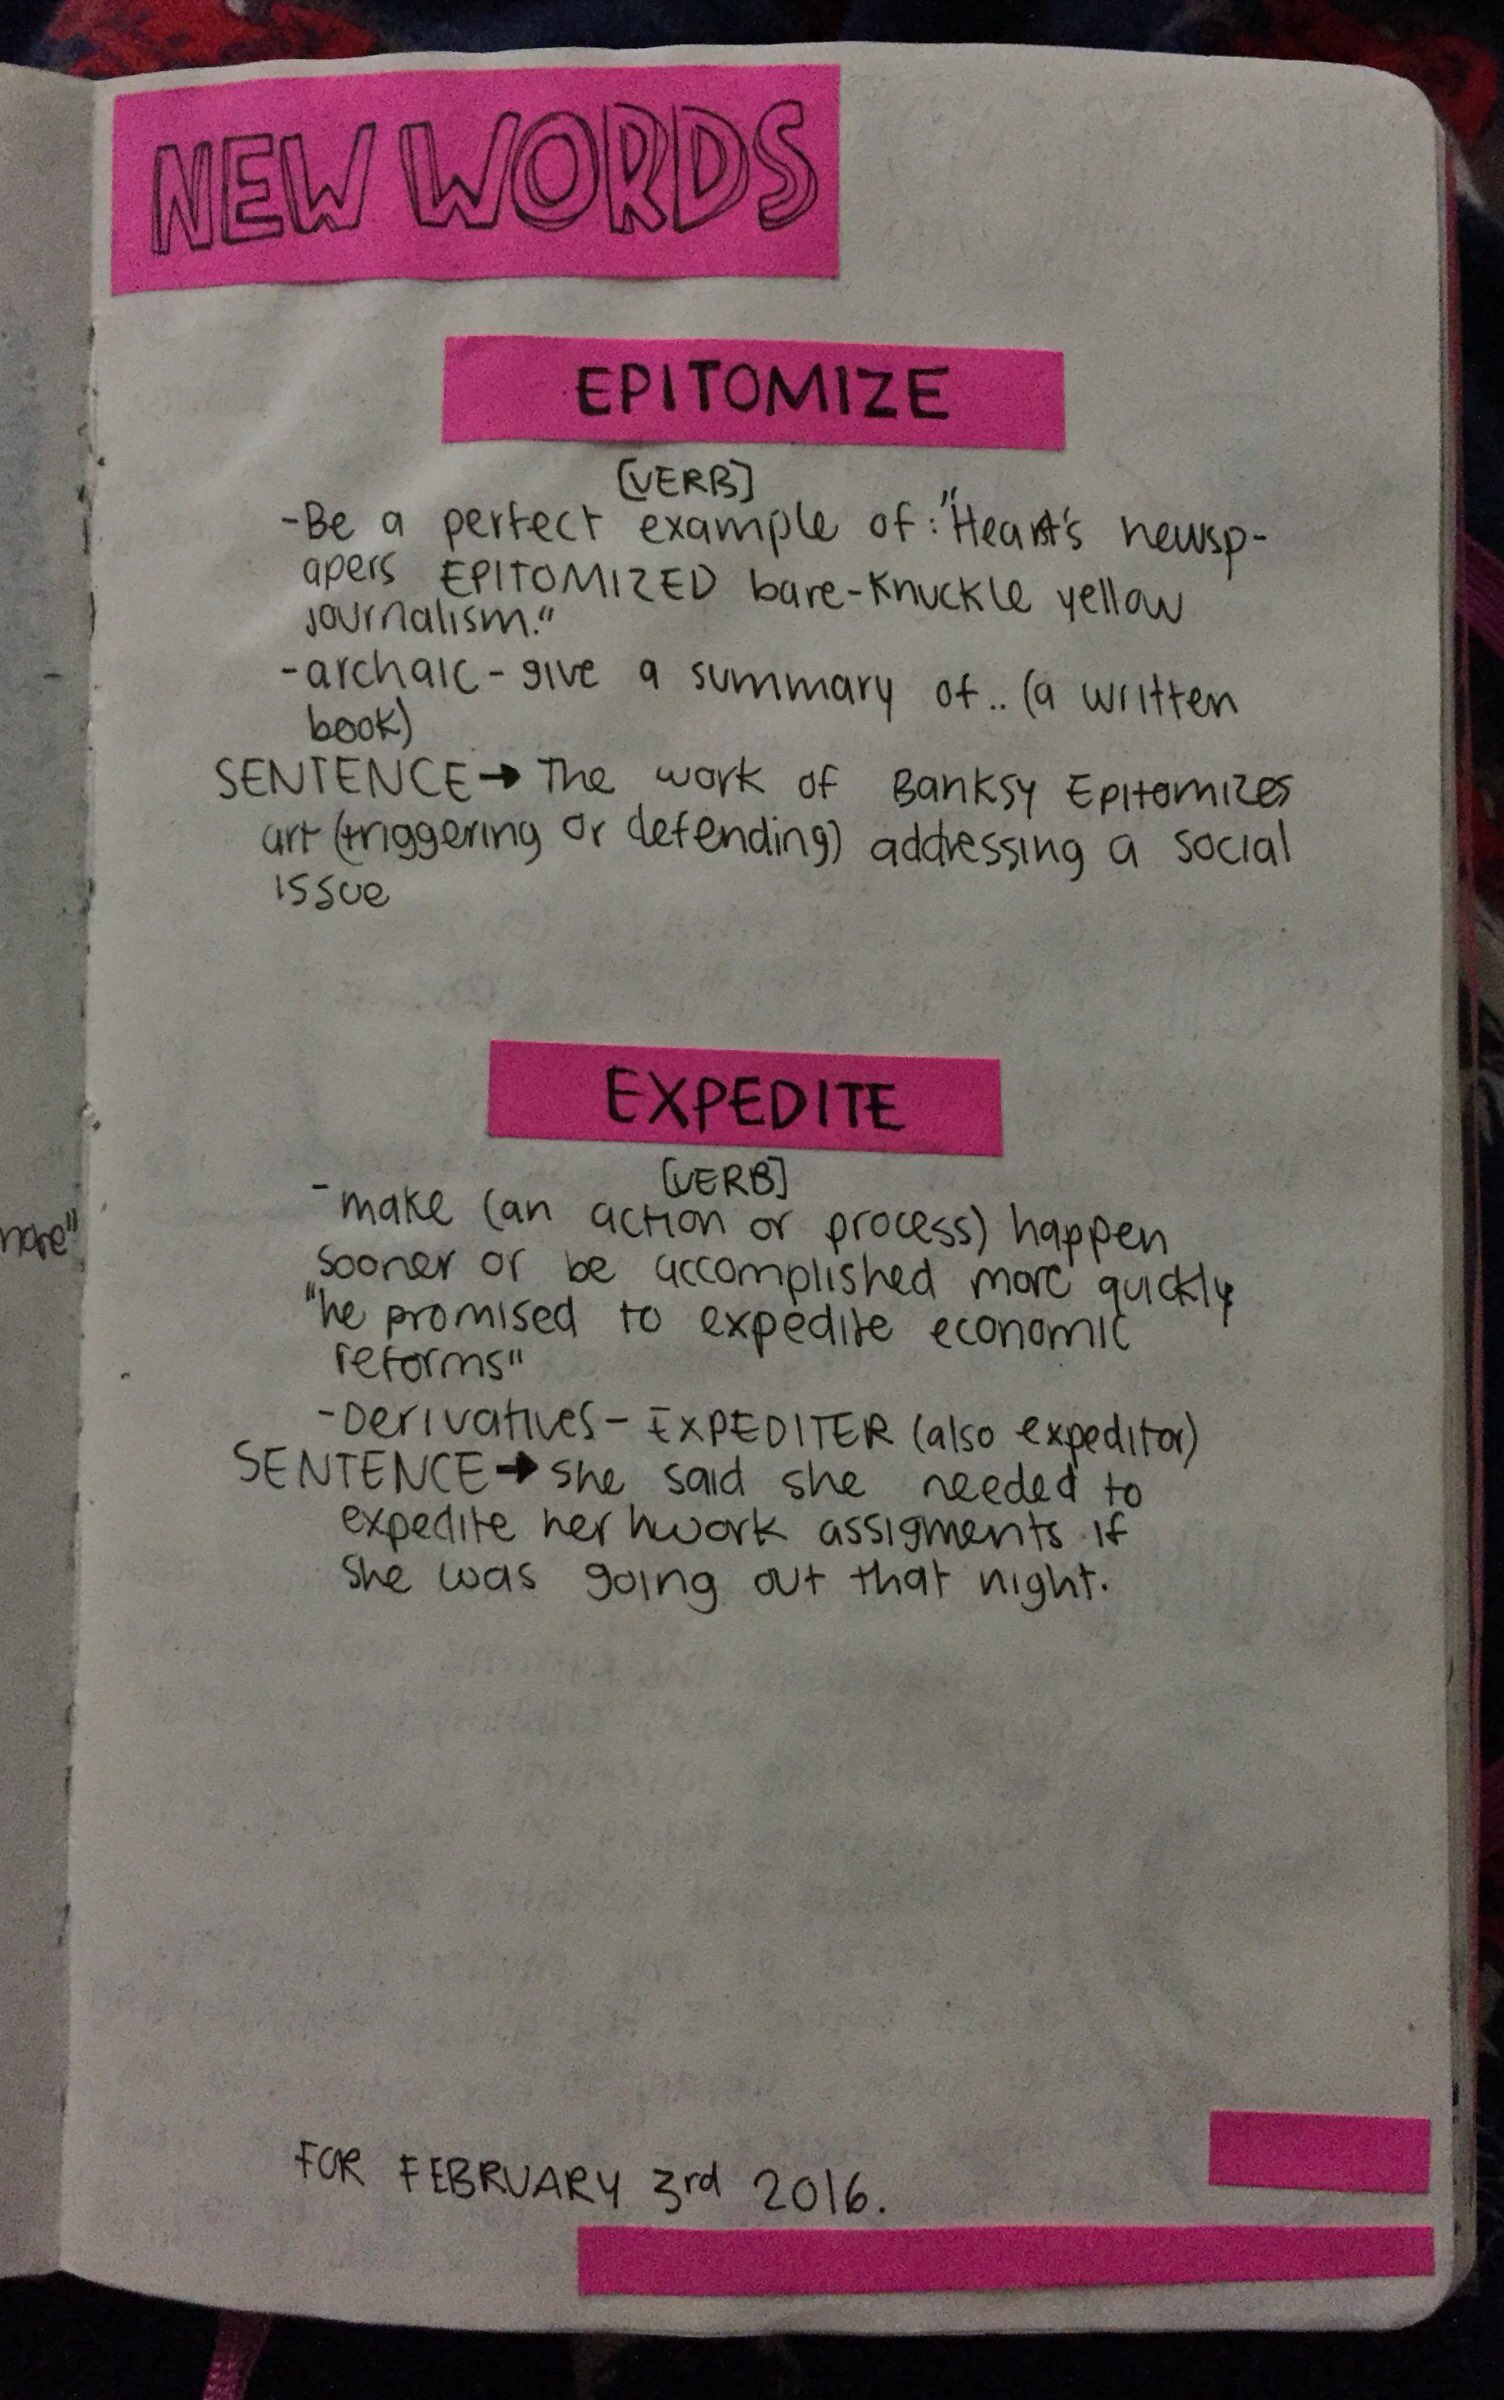 NEW WORDS
EPITOMIZE
[VERB]
-Be a perfect example of: "Heart's newsp-
apers EPITOMIZED bare-knuckle yellow
journalism."
-archaic- give a summary of.. (a written
book)
SENTENCE → The work of Banksy Epitomizes
art (triggering or defending) addressing a social
issue
EXPEDITE
[VERB]
-make (an action or process) happen
sooner or be accomplished more quickly
"he promised to expedite economic
reforms"
-Derivatives- EXPEDITER (also expeditor)
SENTENCE → she said she needed to
expedite her hwork assigments if
she was going out that night.
more"
FOR FEBRUARY 3rd 2016.